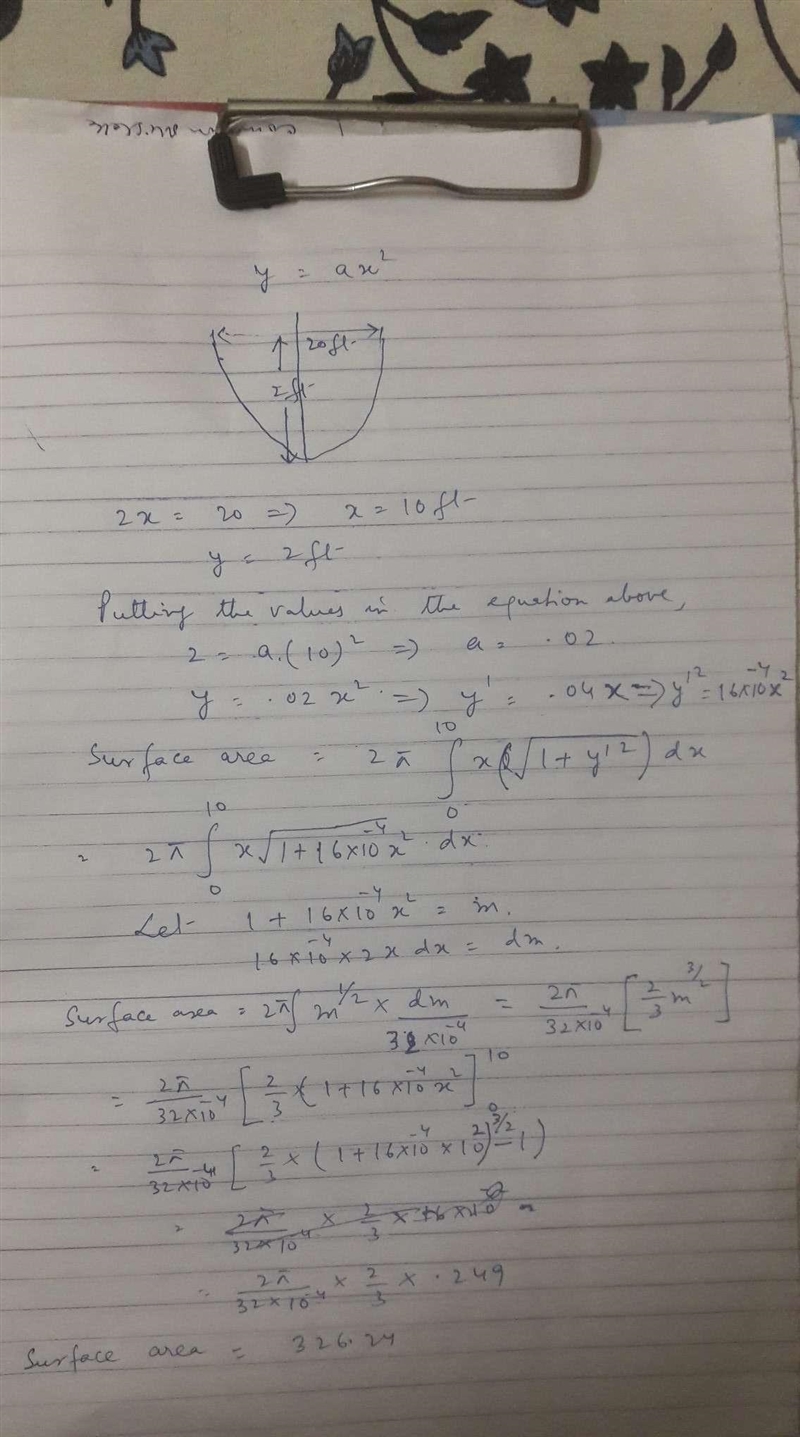 y = ax²
20ft
2ft
2x = 20 => x = 10ft
y = 2ft
Putting the values in the equation above,
2 = a.(10)² => a = .02
y = .02 x² => y' = .04x => y'² = 16×10⁻⁴x²
Surface area = 2π ∫₀¹⁰ x(√1+y'²) dx
= 2π ∫₀¹⁰ x√1+16×10⁻⁴x² . dx
Let 1 + 16×10⁻⁴x² = m.
16×10⁻⁴×2x dx = dm.
Surface area = 2π∫ m^1/2 × dm/32×10⁻⁴ = 2π/32×10⁻⁴ [2/3 m^3/2]
= 2π/32×10⁻⁴ [2/3 × (1+16×10⁻⁴x²]₀¹⁰
= 2π/32×10⁻⁴ [2/3 × (1+16×10⁻⁴×10²)^3/2 - 1)
= 2π/32×10⁻⁴ × 2/3 × .249
Surface area = 326.24